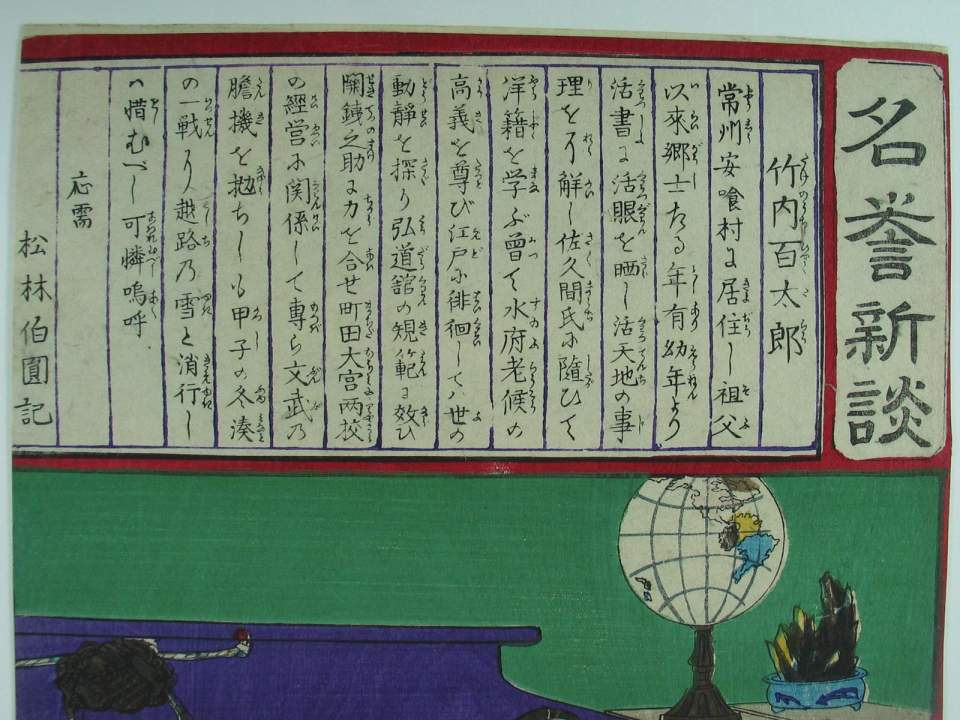 名誉新談
竹内百太郎
常州安喰村に居住し祖父
以来郷士たる年有幼年より
活書に活眼を晒し活天地の事
理をり解し佐久間氏に随ひて
洋籍を学ぶ曽て水府老候の
高義を尊び江戸に徘徊しては世の
動静を探り弘道舘の規範に效ひ
関鉄之助に力を合せ町田大宮両校
の經営に関係して専ら文武の
膽機を抛ちしも甲子の冬湊
の一戦より越路乃雪と消行し
は惜むべし可憐嗚呼
応需
松林伯圓記